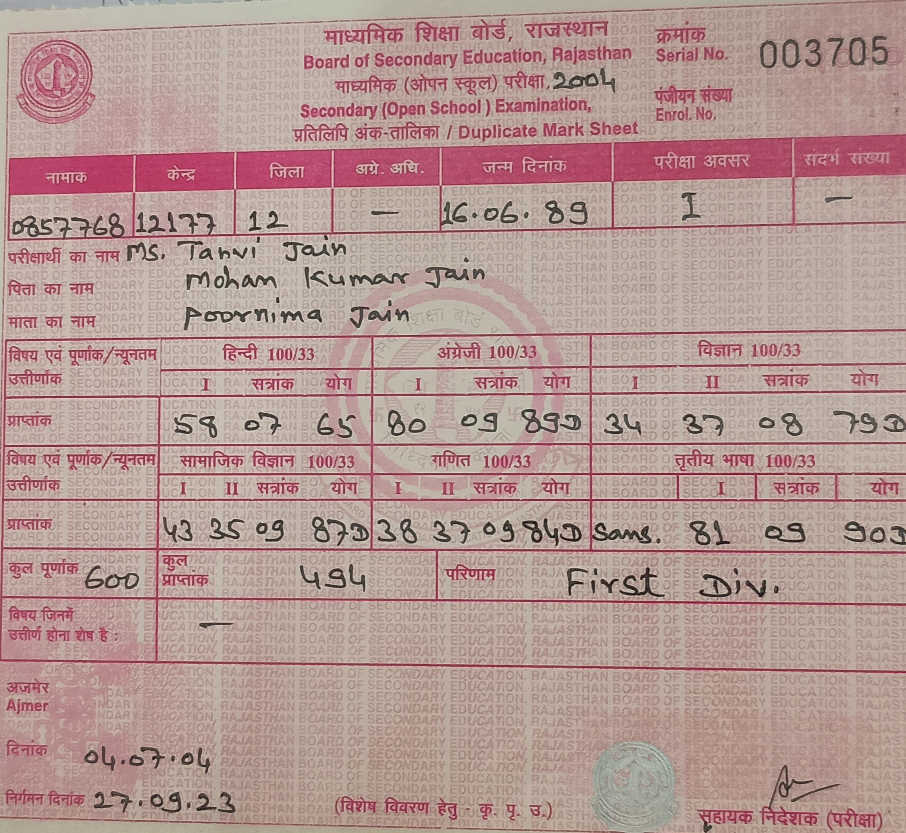 माध्यमिक शिक्षा बोर्ड, राजस्थान
Board of Secondary Education, Rajasthan
माध्यमिक (ओपन स्कूल) परीक्षा, 2004
Secondary (Open School) Examination,
प्रतिलिपि अंक-तालिका / Duplicate Mark Sheet
क्रमांक
Serial No. 003705
पंजीयन संख्या
Enrol. No.
नामाक केन्द्र जिला अग्रे. अधि. जन्म दिनांक परीक्षा अवसर संदर्भ संख्या
0857768 12177 12 — 16.06.89 I —
परीक्षार्थी का नाम Ms. Tanvi Jain
पिता का नाम Mohan Kumar Jain
माता का नाम Poornima Jain
विषय एवं पूर्णांक/न्यूनतम हिन्दी 100/33 अंग्रेजी 100/33 विज्ञान 100/33
उत्तीर्णांक I सत्रांक योग I सत्रांक योग I II सत्रांक योग
प्राप्तांक 58 07 65 80 09 89D 34 37 08 79D
विषय एवं पूर्णांक/न्यूनतम सामाजिक विज्ञान 100/33 गणित 100/33 तृतीय भाषा 100/33
उत्तीर्णांक I II सत्रांक योग I II सत्रांक योग I सत्रांक योग
प्राप्तांक 43 35 09 87D 38 37 09 84D Sans. 81 09 90D
कुल पूर्णांक 600 कुल प्राप्तांक 494 परिणाम First Div.
विषय जिनमें
उत्तीर्ण होना शेष है : —
अजमेर
Ajmer
दिनांक 04.07.04
निर्गमन दिनांक 27.09.23 (विशेष विवरण हेतु - कृ. पृ. उ.) सहायक निदेशक (परीक्षा)